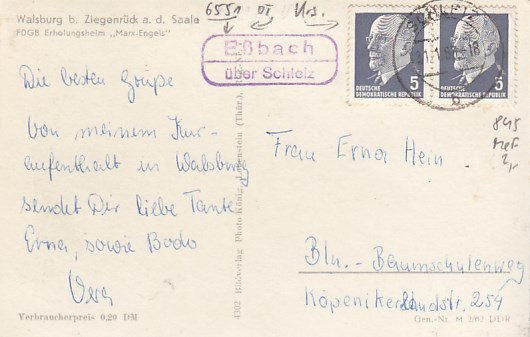 Walsburg b. Ziegenrück a. d. Saale
FDGB Erholungsheim „Marx-Engels"
6551 OT
Eßbach
über Schleiz
SCHLEIZ
b
DEUTSCHE
DEMOKRATISCHE REPUBLIK
5
DEUTSCHE
DEMOKRATISCHE REPUBLIK
5
845
Die besten Grüße
von meinem Kur-
aufenthalt in Walsburg
sendet Dir liebe Tante
Erna, sowie Bodo
Vera
Verbraucherpreis 0,20 DM
4302 Bildverlag Photo-König, (Thür.)
Frau Erna Hein
Bln.- Baumschulenweg
Köpenikerlandstr. 254
DDR